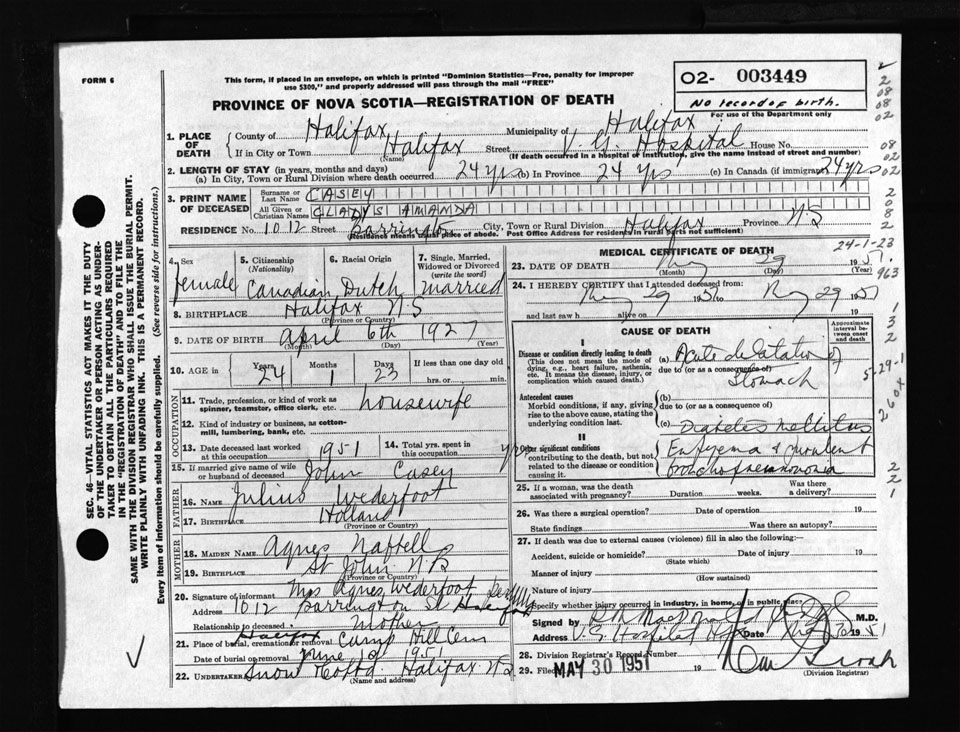 FORM 6
This form, if placed in an envelope, on which is printed "Dominion Statistics—Free, penalty for improper
use $300," and properly addressed will pass through the mail "FREE"
PROVINCE OF NOVA SCOTIA—REGISTRATION OF DEATH
O2- 003449
No record of birth.
For use of the Department only
1. PLACE OF DEATH
County of Halifax Municipality of Halifax
If in City or Town Halifax Street V. G. Hospital House No.
(Name) (If death occurred in a hospital or institution, give the name instead of street and number)
2. LENGTH OF STAY (in years, months and days)
(a) In City, Town or Rural Division where death occurred 24 yrs (b) In Province 24 yrs (c) In Canada (if immigrant) 24 yrs
3. PRINT NAME OF DECEASED
Surname or Last Name CASEY
All Given or Christian Names GLADYS AMANDA
RESIDENCE No. 1012 Street Barrington City, Town or Rural Division Halifax Province N S
(Residence means usual place of abode. Post Office Address for residents in rural parts not sufficient)
4. Sex female
5. Citizenship (Nationality) Canadian
6. Racial Origin Dutch
7. Single, Married, Widowed or Divorced (write the word) married
8. BIRTHPLACE Halifax N S
(Province or Country)
9. DATE OF BIRTH April 6th 1927
(Month) (Day) (Year)
10. AGE in Years 24 Months 1 Days 23 If less than one day old hrs. or min.
OCCUPATION
11. Trade, profession, or kind of work as spinner, teamster, office clerk, etc. housewife
12. Kind of industry or business, as cotton-mill, lumbering, bank, etc.
13. Date deceased last worked at this occupation 1951
14. Total yrs. spent in this occupation yrs
15. If married give name of wife or husband of deceased John Casey
FATHER
16. NAME Julius Wederfoot
17. BIRTHPLACE Holland
(Province or Country)
MOTHER
18. MAIDEN NAME Agnes Naffell
19. BIRTHPLACE St John N B
(Province or Country)
20. Signature of informant Mrs Agnes Wederfoot
Address 1012 Barrington St Halifax
Relationship to deceased Mother
21. Place of burial, cremation or removal Halifax Camp Hill Cem
Date of burial or removal June 1st 1951
22. UNDERTAKER Snow Co Ltd Halifax N S
(Name and address)
MEDICAL CERTIFICATE OF DEATH
24-1-23
23. DATE OF DEATH May 29 1951
(Month) (Day) (Year)
24. I HEREBY CERTIFY that I attended deceased from:
May 29 1951 to May 29 1951
and last saw h alive on 19
CAUSE OF DEATH
Approximate interval between onset and death
I
Disease or condition directly leading to death
(This does not mean the mode of dying, e.g., heart failure, asthenia, etc. It means the disease, injury, or complication which caused death.)
(a) Acute dilatation of
due to (or as a consequence of)
Stomach
Antecedent causes
Morbid conditions, if any, giving rise to the above cause, stating the underlying condition last.
(b)
due to (or as a consequence of)
(c) Diabetes Mellitus
II
Other significant conditions
contributing to the death, but not related to the disease or condition causing it
Empyema & purulent
bronchopneumonia
5-29-1
260X
963
25. If a woman, was the death associated with pregnancy? Duration weeks. Was there a delivery?
26. Was there a surgical operation? Date of operation 19
State findings Was there an autopsy?
27. If death was due to external causes (violence) fill in also the following:—
Accident, suicide or homicide? Date of injury 19
(State which)
Manner of injury
(How sustained)
Nature of injury
Specify whether injury occurred in industry, in home, or in public place
Signed by M.D.
Address V. G. Hospital Date May 30 1951
28. Division Registrar's Record Number
29. Filed MAY 30 1951 19
(Division Registrar)
SEC. 46—VITAL STATISTICS ACT MAKES IT THE DUTY
OF THE UNDERTAKER OR PERSON ACTING AS UNDER-
TAKER TO OBTAIN ALL THE PARTICULARS REQUIRED
IN THE "REGISTRATION OF DEATH" AND TO FILE THE
SAME WITH THE DIVISION REGISTRAR WHO SHALL ISSUE THE BURIAL PERMIT.
WRITE PLAINLY WITH UNFADING INK. THIS IS A PERMANENT RECORD.
Every item of information should be carefully supplied. (See reverse side for instructions.)